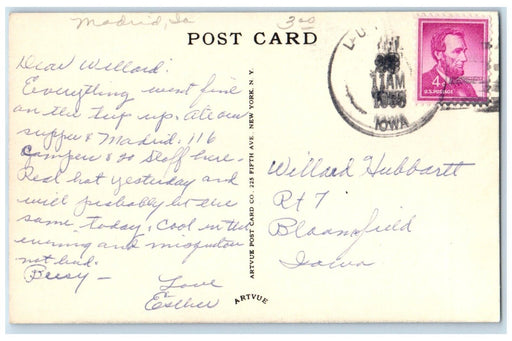 Madrid, Ia
3.00
POST CARD
Dear Willard:
Everything went fine
on the trip up. Ate our
supper & Madrid. 116
Campers & 20 Staff here.
Real hot yesterday and
will probably be the
same today. Cool in the
evening and misquitoes
not bad.
Busy —
Love
Esther
ARTVUE POST CARD CO. 225 FIFTH AVE. NEW YORK, N. Y.
ARTVUE
AM
IOWA
4¢
U.S. POSTAGE
Willard Hubbartt
Rt 7
Bloomfield
Iowa